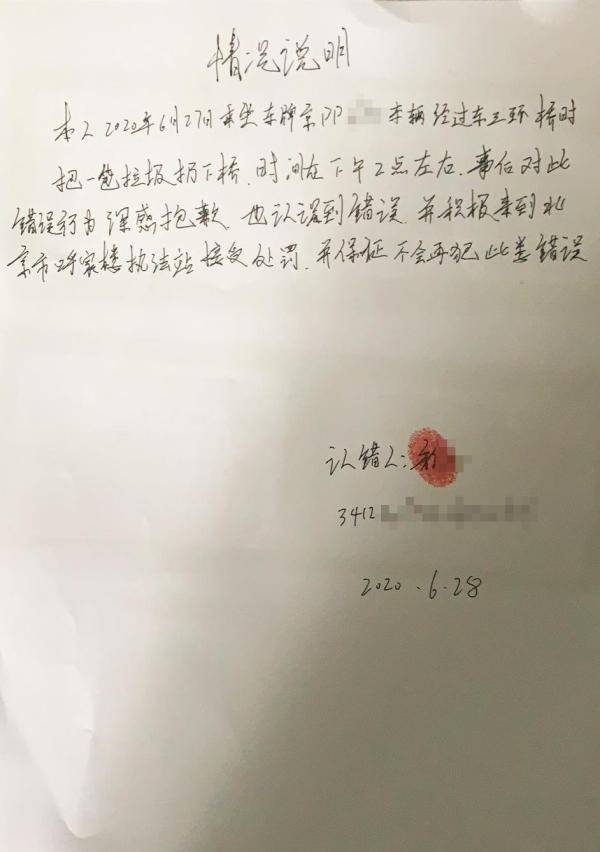 情况说明
本人2020年6月27日乘坐车牌京 车辆经过东三环桥时
把一包垃圾扔下桥.时间在下午2点左右.事后对此
错误行为深感抱歉.也认识到错误.并积极来到北
京市呼家楼执法站接受处罚.并保证不会再犯此类错误
认错人:
3412
2020.6.28